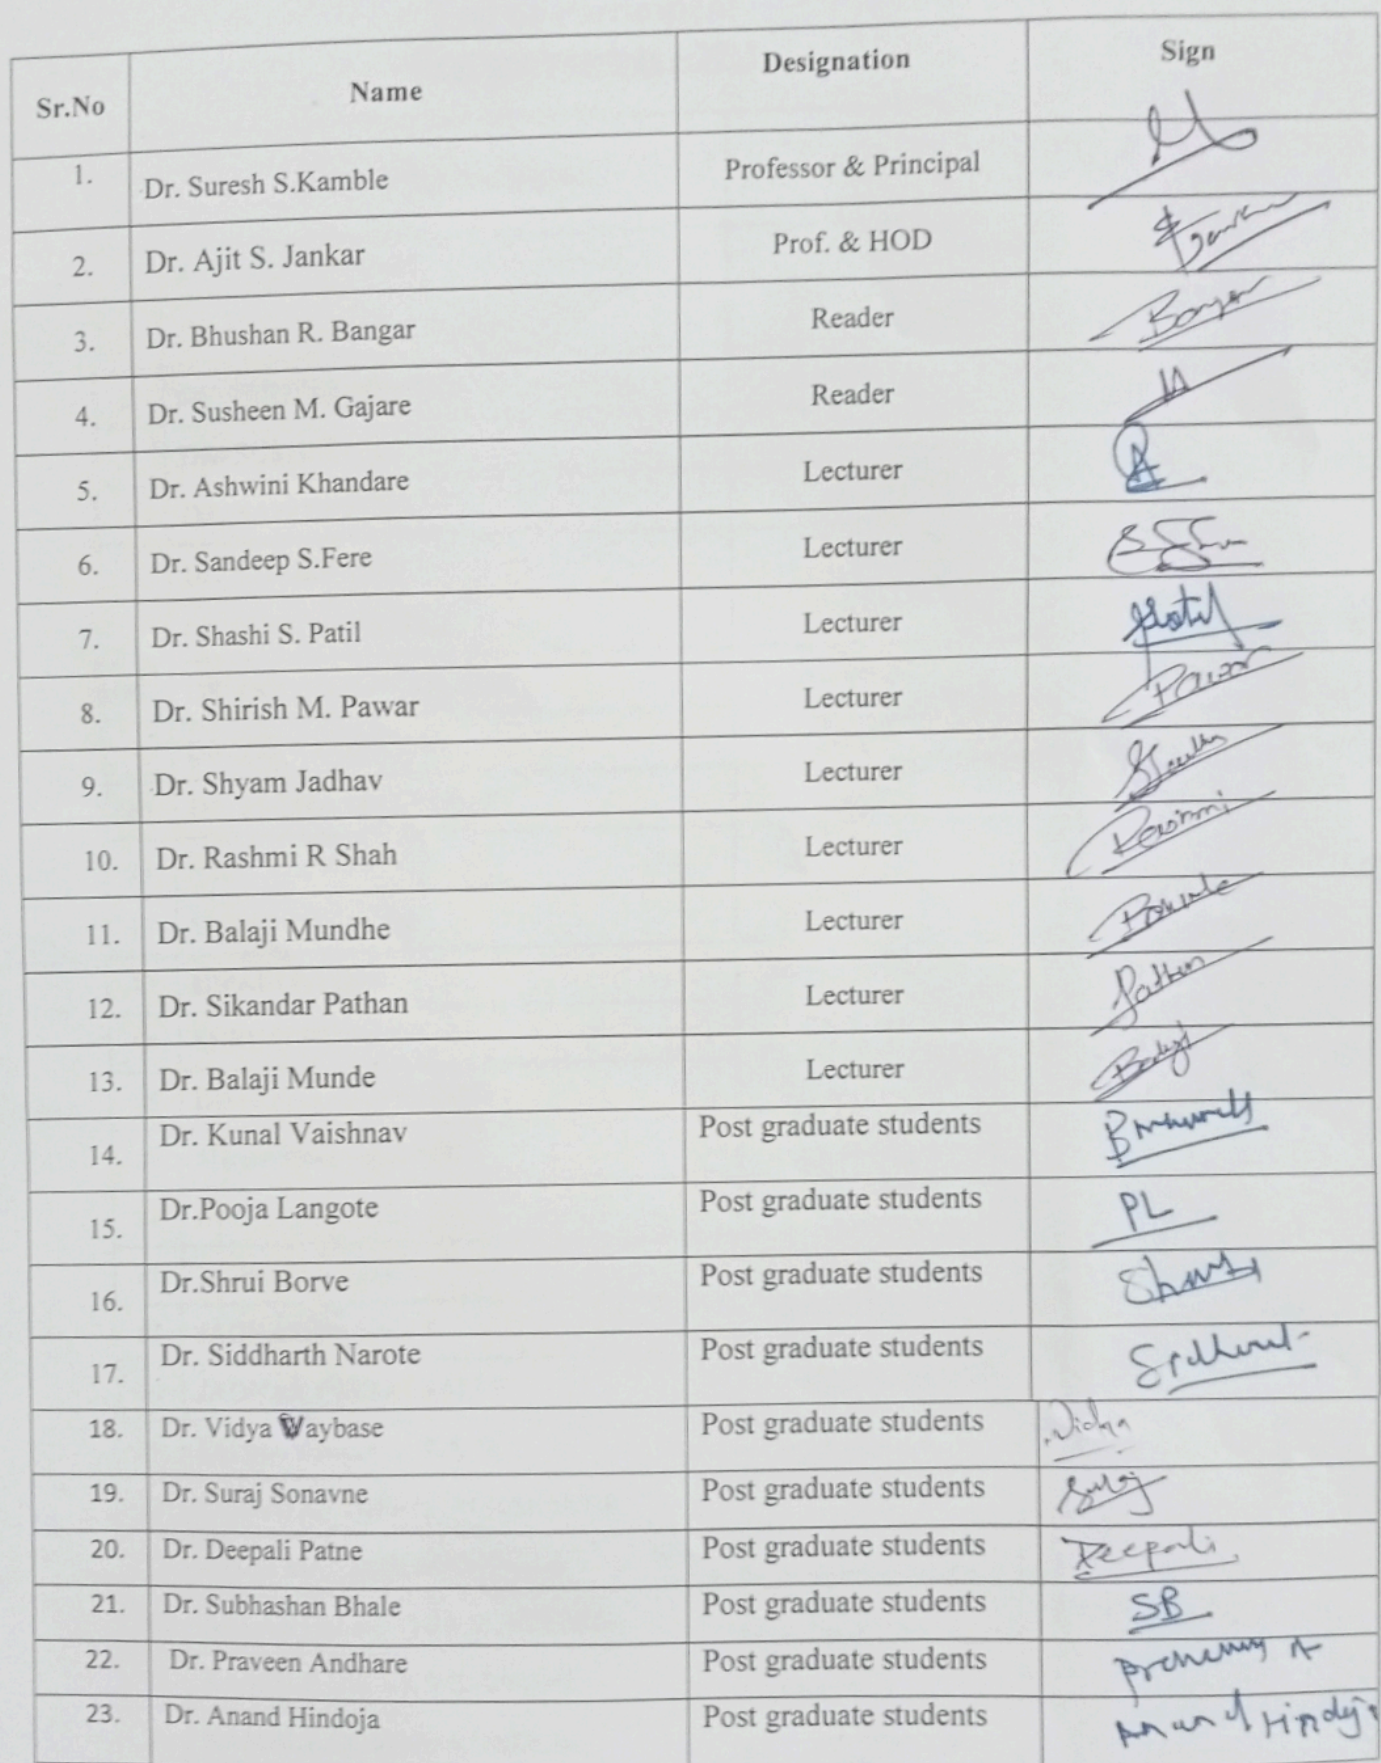 Sr.No Name Designation Sign
1. Dr. Suresh S.Kamble Professor & Principal
2. Dr. Ajit S. Jankar Prof. & HOD
3. Dr. Bhushan R. Bangar Reader
4. Dr. Susheen M. Gajare Reader
5. Dr. Ashwini Khandare Lecturer
6. Dr. Sandeep S.Fere Lecturer
7. Dr. Shashi S. Patil Lecturer
8. Dr. Shirish M. Pawar Lecturer Pawar
9. Dr. Shyam Jadhav Lecturer
10. Dr. Rashmi R Shah Lecturer Rashmi
11. Dr. Balaji Mundhe Lecturer
12. Dr. Sikandar Pathan Lecturer
13. Dr. Balaji Munde Lecturer
14. Dr. Kunal Vaishnav Post graduate students
15. Dr.Pooja Langote Post graduate students PL
16. Dr.Shrui Borve Post graduate students
17. Dr. Siddharth Narote Post graduate students
18. Dr. Vidya Waybase Post graduate students Vidya
19. Dr. Suraj Sonavne Post graduate students Suraj
20. Dr. Deepali Patne Post graduate students Deepali
21. Dr. Subhashan Bhale Post graduate students SB
22. Dr. Praveen Andhare Post graduate students
23. Dr. Anand Hindoja Post graduate students